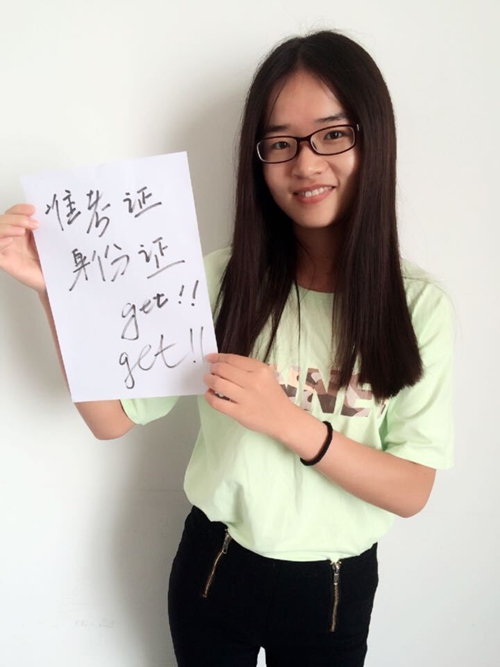 准考证
身份证
get!!
get!!